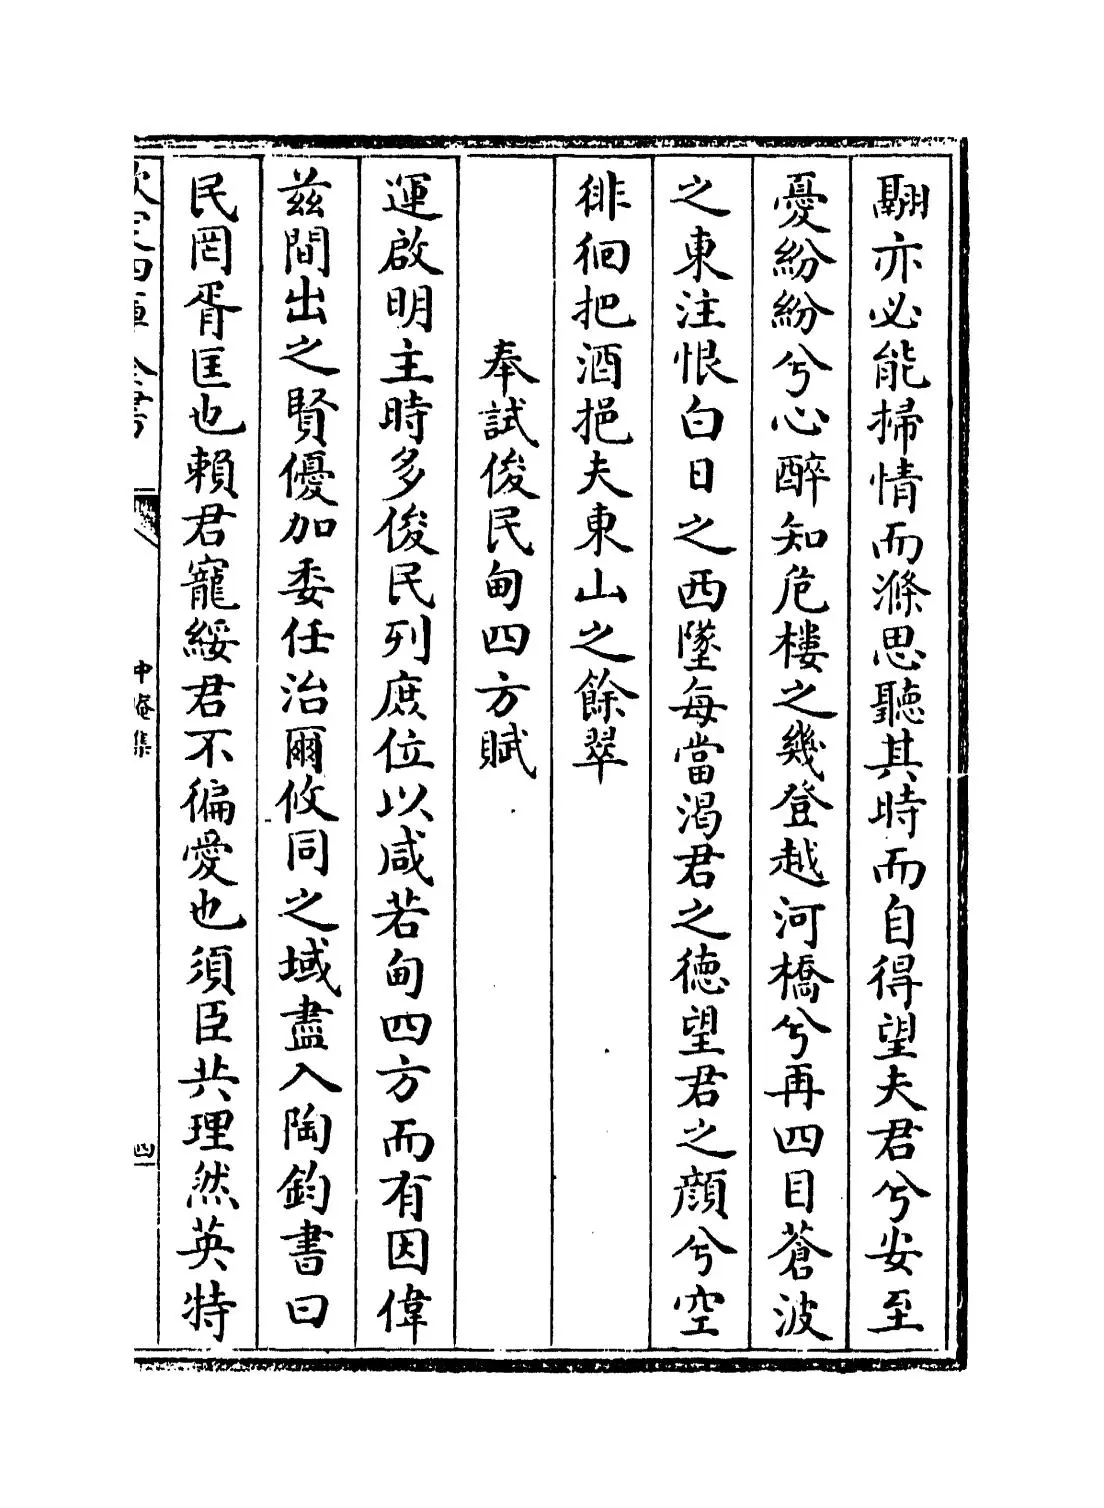 翮亦必能掃情而滌思聽其時而自得望夫君兮安至
憂紛紛兮心醉知危樓之幾登越河橋兮再四目蒼波
之東注恨白日之西墜每當渴君之德望君之顔兮空
徘徊把酒挹夫東山之餘翠
奉試俊民甸四方賦
運啟明主時多俊民列庶位以咸若甸四方而有因偉
茲間出之賢優加委任治爾攸同之域盡入陶鈞書曰
民罔胥匡也賴君寵綏君不徧愛也須臣共理然英特
欽定四庫全書
中庵集
四